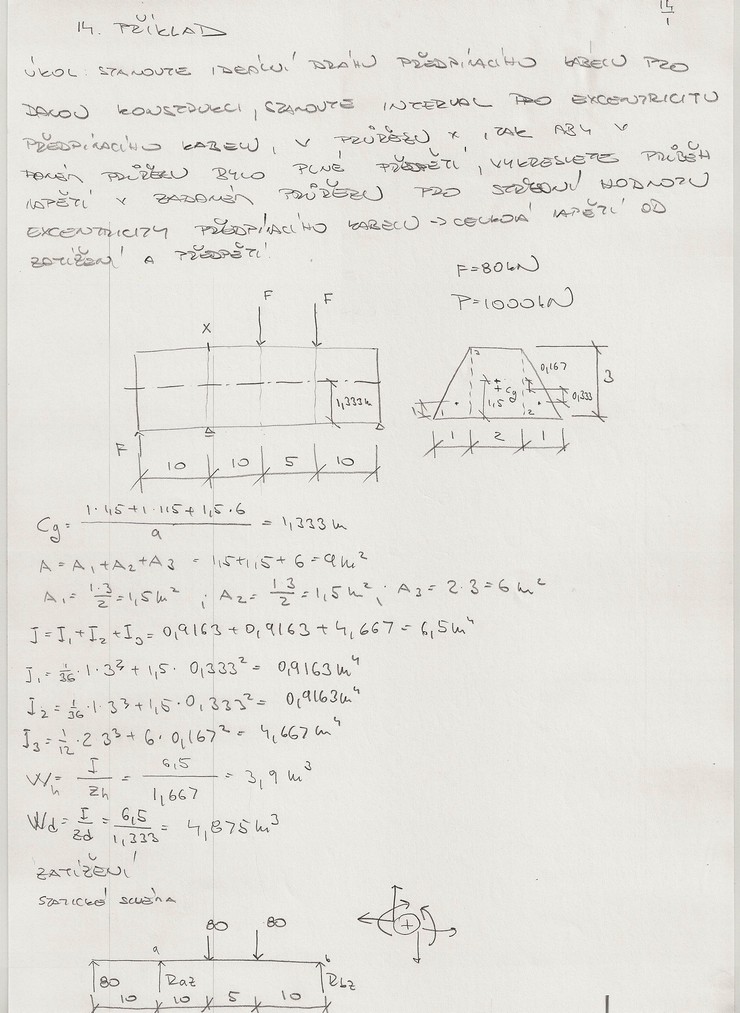 14
1
14. PŘÍKLAD
ÚKOL: STANOVTE IDEÁLNÍ DRÁHU PŘEDPÍNACÍHO KABELU PRO
DANOU KONSTRUKCI, STANOVTE INTERVAL PRO EXCENTRICITU
PŘEDPÍNACÍHO KABELU, V PRŮŘEZU X, TAK ABY V
DANÉM PRŮŘEZU BYLO PLNÉ PŘEDPĚTÍ, VYKRESLETE PRŮBĚH
NAPĚTÍ V ZADANÉM PRŮŘEZU PRO STŘEDNÍ HODNOTU
EXCENTRICITY PŘEDPÍNACÍHO KABELU → CELKOVÁ NAPĚTÍ OD
ZATÍŽENÍ A PŘEDPĚTÍ.
F=80kN
P=1000kN
F F
X
1,333m
F
10 10 5 10
2 0,167
+ Cg 3
1,5 0,333
1 1 2
1 2 1
Cg = 1·1,5+1·1,5+1,5·6 / 9 = 1,333m
A = A1+A2+A3 = 1,5+1,5+6=9m²
A1= 1·3/2=1,5m² ; A2= 1·3/2=1,5m² ; A3= 2·3=6m²
J=I1+I2+I3= 0,9163+0,9163+4,667= 6,5m⁴
I1= 1/36·1·3³+1,5·0,333²= 0,9163m⁴
I2= 1/36·1·3³+1,5·0,333²= 0,9163m⁴
I3= 1/12·2·3³+6·0,167²= 4,667m⁴
Wh = I/zh = 6,5/1,667 = 3,9m³
Wd= I/zd = 6,5/1,333= 4,875m³
ZATÍŽENÍ
STATICKÉ SCHÉMA
80 80
a b
80 Raz Rbz
10 10 5 10
+